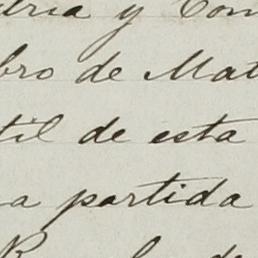 dria y Com
bro de Mat
til de esta
a partida